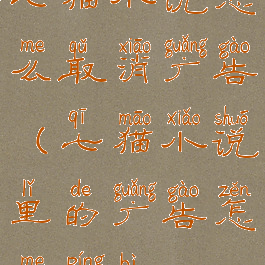 七猫小说怎
me qǔ xiāo guǎng gào
么取消广告
qī māo xiǎo shuō
（七猫小说
lǐ de guǎng gào zěn
里的广告怎
me píng bì